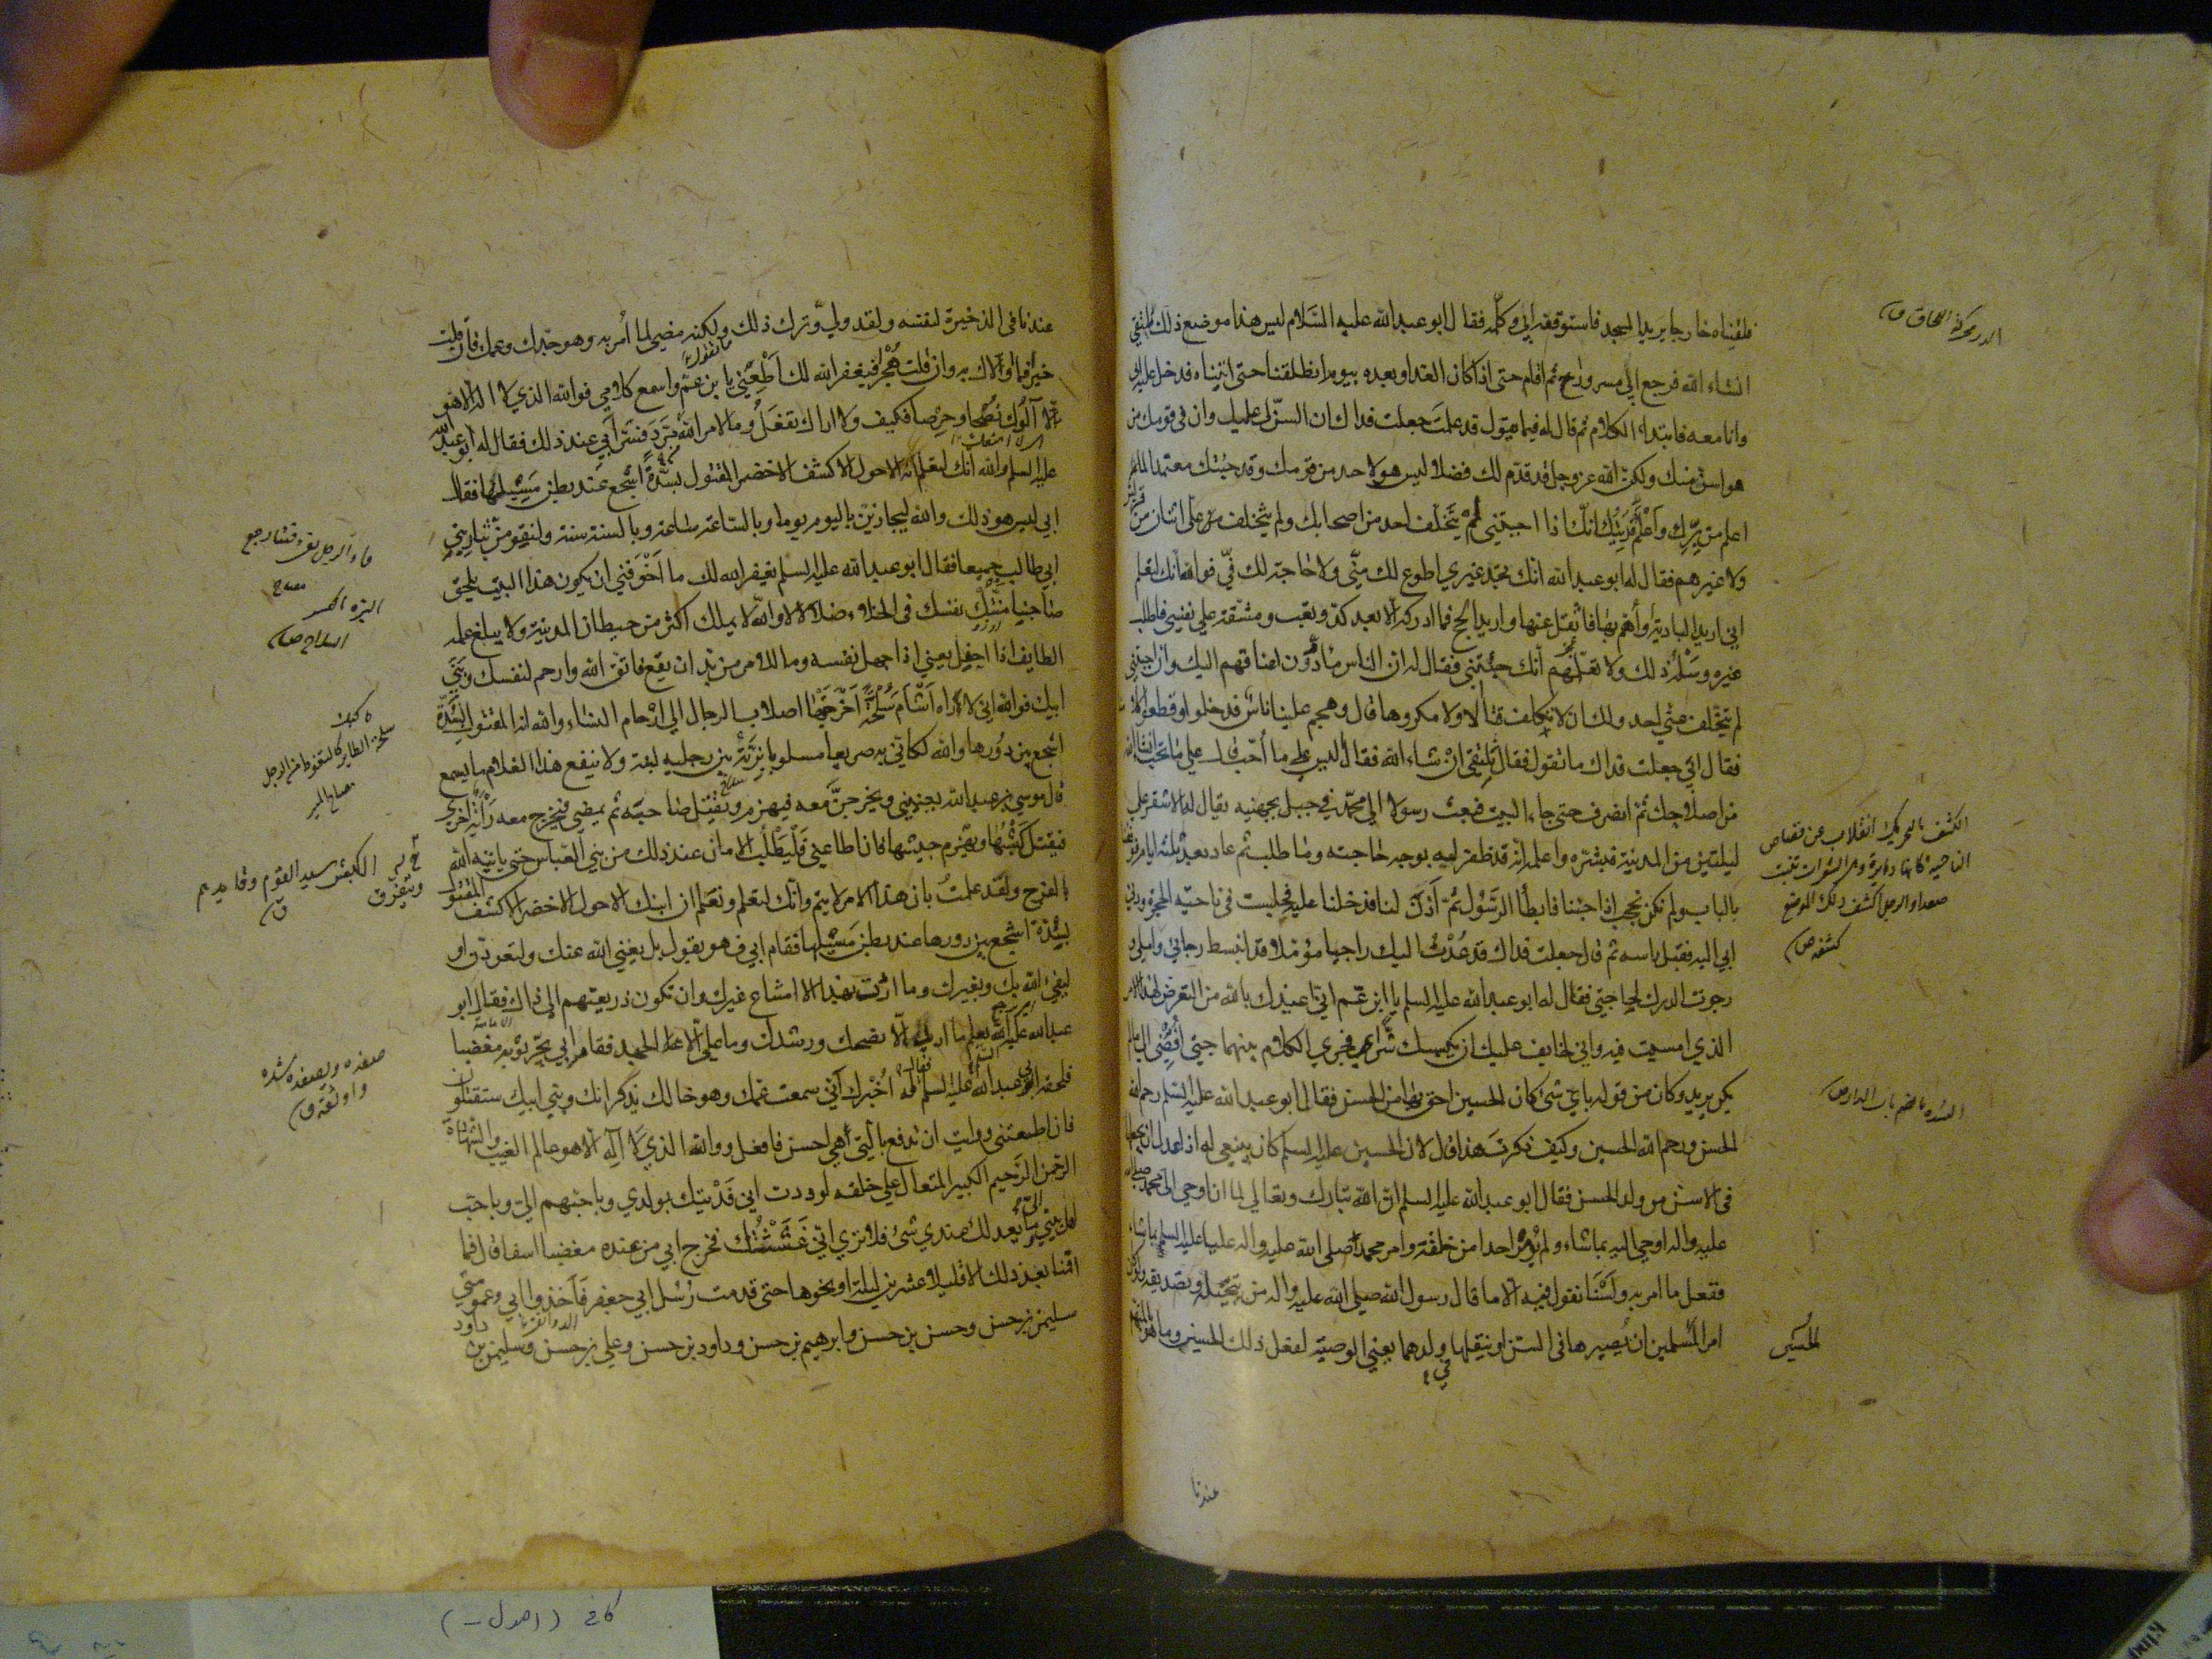 فلقيناه خارجا يريد المسجد فاستوقفه ابي وكلّمه فقال ابو عبد الله عليه السّلام ليس هذا موضع ذلك نلتقي
انشاء الله فرجع ابي مسرورا ثم اقام حتى اذا كان الغد او بعده بيوم انطلقنا حتى اتيناه فدخل عليه ابي
وانا معه فابتداء الكلام ثم قال له فيما يقول قد علمت جعلت فداك ان السنّ لي عليك وان في قومك من
هو اسنّ منك ولكن الله عز وجل قد قدّم لك فضلا ليس هو لاحد من قومك وقد جئتك معتمدا لما
اعلم من برّك واعلم فديتك انك اذا اجبتني لم يتخلف احد من اصحابك ولم يتخلف عليّ اثنان من قريش
ولا غيرهم فقال له ابو عبد الله انك تجد غيري اطوع لك منّي ولا حاجة لك فيّ فوالله انك لتعلم
اني اريد البادية او اهمّ بها فاثقل عنها واريد الحج فما ادركه الا بعد كدّ وتعب ومشقة علي نفسي فاطلب
غيري وسله ذلك ولا تعلمهم انك جئتني فقال له ان الناس مادّون اعناقهم اليك وان اجبتني
لم يتخلف عنّي احد ولك ان لا تكلف قتالا ولا مكروها قال وهجم علينا ناس فدخلوا وقطعوا كلامنا
فقال ابي جعلت فداك ما تقول فقال نلتقي ان شاء الله فقال اليس علي ما احبّ قال علي ما تحب انشاء الله
من اصلاحك ثم انصرف حتى جاء البيت فبعث رسولا الي محمّد في جبل بجهينه يقال له الاشقر علي
ليلتين من المدينة فبشّره واعلمه انه قد ظفر له بوجه حاجته وما طلب ثم عاد بعد ثلثة ايام فوقفنا
بالباب ولم نكن نحجب اذا جئنا فابطأ الرّسول ثمّ اذن لنا فدخلنا عليه فجلست في ناحية الحجرة ودني
ابي اليه فقبل راسه ثم قال جعلت فداك قد عدت اليك راجيا مؤملا قد انبسط رجائي واملي و
رجوت الدرك لحاجتي فقال له ابو عبد الله عليه السلم يا ابن عم اني اعيذك بالله من التعرض لهذا الامر
الذي امسيت فيه واني لخايف عليك ان يكسبك شرا فجري الكلام بينهما حتى افضي الي ما لم
يكن يريد وكان من قوله باي شئ كان الحسين احق بها من الحسن فقال ابو عبد الله عليه السلم رحم الله
الحسن ورحم الله الحسين وكيف ذكرت هذا قال لان الحسين عليه السلم كان ينبغي له اذا عدل ان يجعلها
في الاسنّ من ولد الحسن فقال ابو عبد الله عليه السلم ان الله تبارك وتعالي لما ان اوحي الي محمد صلى الله
عليه واله اوحي اليه بما شاء ولم يؤامر احدا من خلقه وامر محمد صلى الله عليه واله عليا عليه السلم بما شاء
ففعل ما امر به ولسنا نقول فيه الا ما قال رسول الله صلى الله عليه واله من تبجيله وتصديقه فلو كان
امر الحسين ان يصيرها في السن او ينقلها في ولدهما يعني الوصية لفعل ذلك الحسين وما هو بالمتهم
عندنا
الكشف بالتحريك انقلاب من قصاص
الناصية كانها دايرة وهي شعيرات تنبت
صعدا والرجل اكشف وذلك الموضع
كشفه ص
السده بالضم باب الدار ص
عندنا في الذخيرة لنفسه ولقد ولّي وترك ذلك ولكنه مضي لما امر به وهو جدّك وعمك فان قلت
خيرا فما اولاك به وان قلت هجرا فيغفر الله لك اطعني يا بن عم واسمع كلامي فوالله الذي لا اله الا هو
لا آلوك نصحا وحرصا فكيف ولا اراك تفعل وما لامر الله من مردّ فسرّ ابي عند ذلك فقال له ابو عبد الله
عليه السلم والله انك لتعلم انه الاحول الاكشف الاخضر المقتول بسدّة اشجع عند بطن مسيلها فقال
ابي ليس هو ذلك والله ليجازينّ باليوم يوما وبالساعة ساعة وبالسنة سنة وليقومن بثار بني
ابي طالب جميعا فقال ابو عبد الله عليه السلم يغفر الله لك ما اخوفني ان يكون هذا البيت يلحق
صاحبنا منّتك نفسك في الخلاء ضلالا لا والله لا يملك اكثر من حيطان المدينة ولا يبلغ عمله
الطايف اذا احفل يعني اذا جهد نفسه وما للامر من بدّ ان يقع فاتق الله وارحم نفسك وبني
ابيك فوالله اني لاراه اشأم سلحة اخرجتها اصلاب الرجال الي ارحام النساء والله انه المقتول بسدّة
اشجع بين دورها والله لكاني به صريعا مسلوبا بزّته بين رجليه لبنة ولا ينفع هذا الغلام ما يسمع
قال موسي بن عبد الله يعنيني وليخرجنّ معه فيهزم ويقتل صاحبه ثم يمضي فيخرج معه راية اخري
فيقتل كبشها ويتفرق جيشها فان اطاعني فليطلب الامان عند ذلك من بني العباس حتى ياتيه الله
بالفرج ولقد علمت بان هذا الامر لا يتم وانك لتعلم ونعلم ان ابنك الاحول الاخضر الاكشف المقتول
بسدّة اشجع بين دورها عند بطن مسيلها فقام ابي وهو يقول بل يغني الله عنك ولتعودن او
ليفئ الله بك وبغيرك وما اردت بهذا الا امتناع غيرك وان تكون ذريعتهم الي ذاك فقال ابو
عبد الله الله يعلم ما اريد الا نصحك ورشدك وما عليّ الا الجهد فقام ابي يجرّ ثوبه مغضبا
فلحقه ابو عبد الله عليه السلم فقال له اخبرك اني سمعت عمك وهو خالك يذكر انك وبني ابيك ستقتلون
فان اطعتني ورايت ان تدفع بالتي هي احسن فافعل ووالله الذي لا اله الا هو عالم الغيب والشهادة
الرحمن الرحيم الكبير المتعال علي خلقه لوددت اني فديتك بولدي وباحبّهم اليّ وباحبّ
اهل بيتي اليّ وما يعدلك عندي شئ فلا تري اني غششتك فخرج ابي من عنده مغضبا اسفا قال فما
اقمنا بعد ذلك الا قليلا عشرين ليلة او نحوها حتى قدمت رسل ابي جعفر فاخذوا ابي وعمومتي
سليمن بن حسن وحسن بن حسن وابرهيم بن حسن وداود بن حسن وعلي بن حسن وسليمن بن
داود
سلحة الطاير كالتغوط من الرجل
مصباح المنير
الكبش سيد القوم وقايدهم
ق
كافي (اصول -)